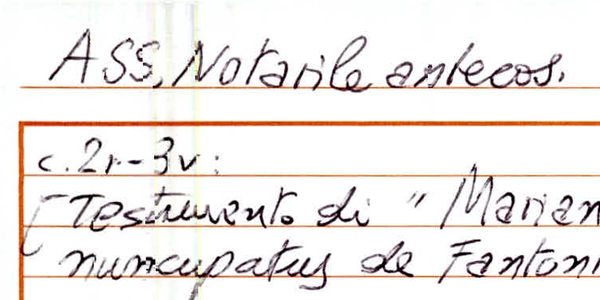 ASS, Notarile antecos.
c. 2r-3v:
[Testamento di "Marian
nuncupatus de Fantoni